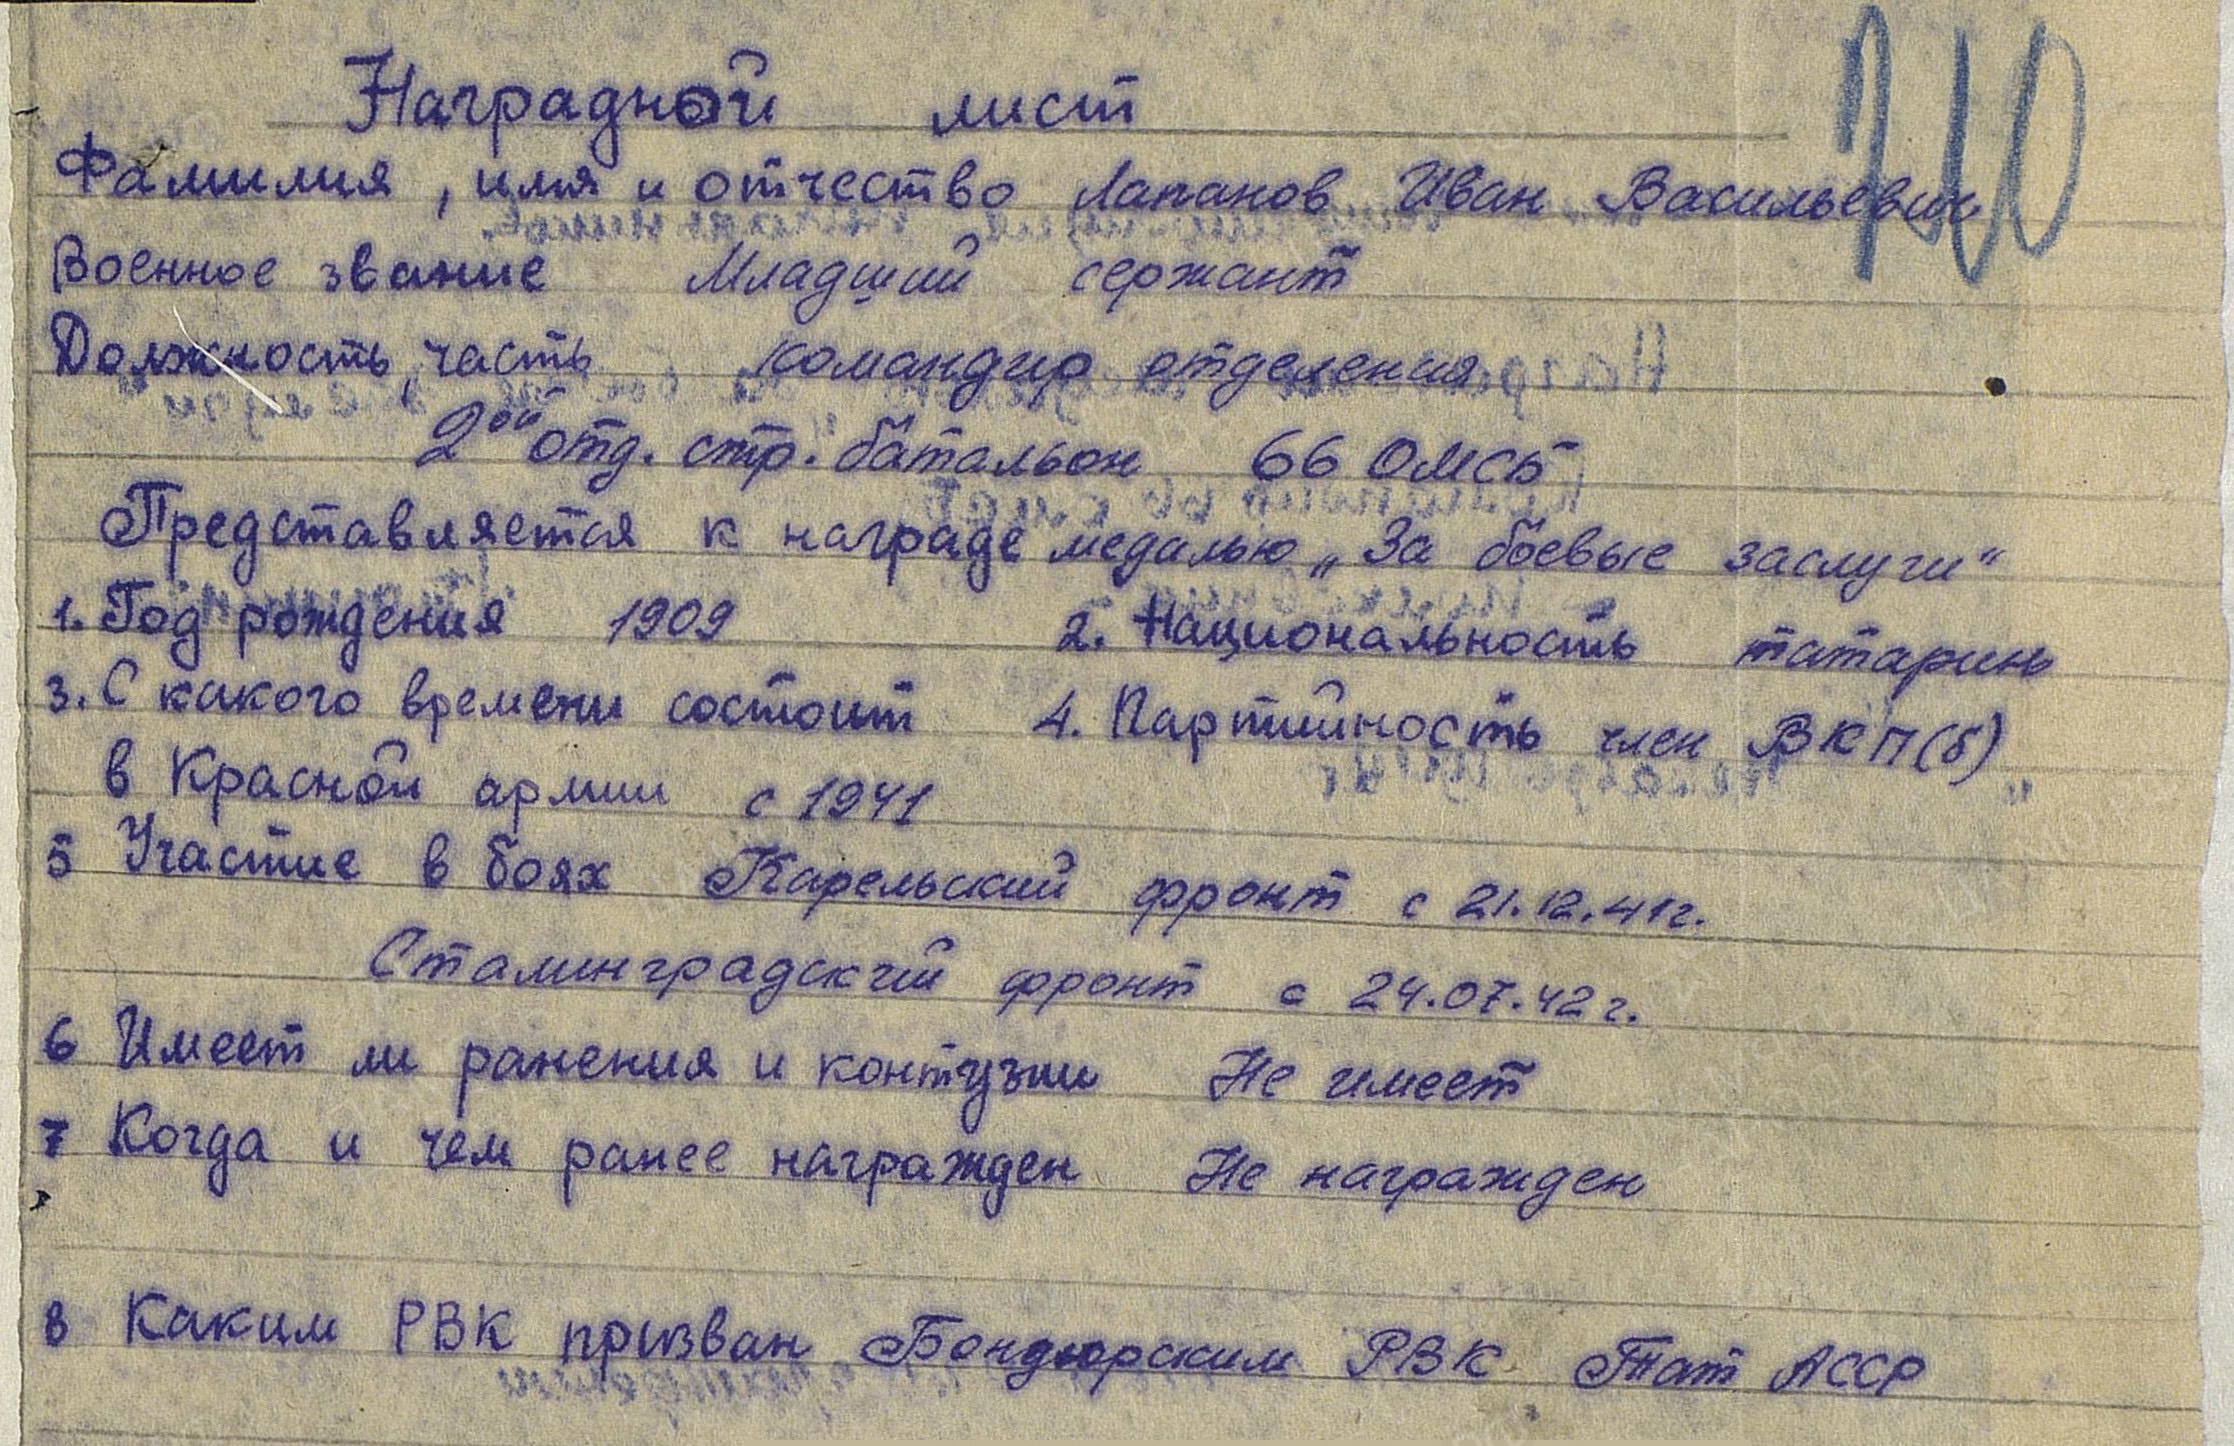 710
Наградной лист
Фамилия, имя и отчество Лапанов Иван Васильевич
Военное звание Младший сержант
Должность, часть командир отделения
2ой отд. стр. батальон 66 ОМСБ
Представляется к награде медалью „За боевые заслуги“
1. Год рождения 1909 2. Национальность татаринь
3. С какого времени состоит 4. Партийность член ВКП(б)
в Красной армии с 1941
5 Участие в боях Карельский фронт с 21.12.41г.
Сталинградский фронт с 24.07.42г.
6 Имеет ли ранения и контузии Не имеет
7 Когда и чем ранее награжден Не награжден
8 Каким РВК призван Бондюрским РВК Тат АССР